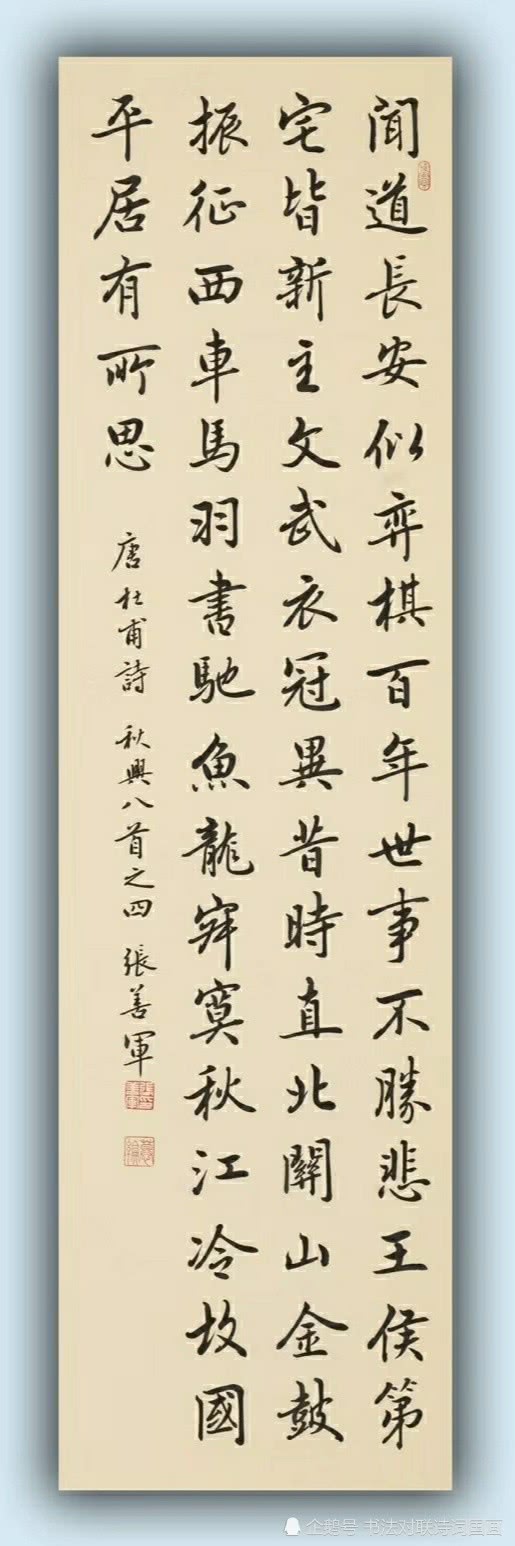 聞道長安似弈棋百年世事不勝悲王侯第
宅皆新主文武衣冠異昔時直北關山金鼓
振征西車馬羽書馳魚龍寂寞秋江冷故國
平居有所思
唐杜甫詩 秋興八首之四 張善軍
企鹅号 书法对联诗词国画